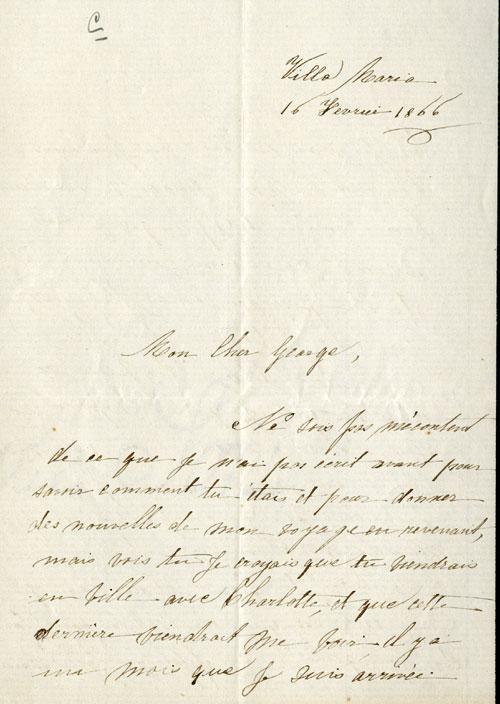 Villa Maria
16 Fevrier 1866
Mon Cher George,
Ne sois pas mécontent
de ce que je n'ai pas écrit avant pour
savoir comment tu étais et pour donner
des nouvelles de mon voyage en revenant,
mais vois tu je croyais que tu viendrais
en ville avec Charlotte, et que cette
dernière viendrait me voir il y a
un mois que je suis arrivée.